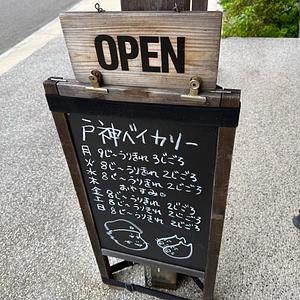 OPEN
戸神ベイカリー
月 9じ〜うりきれ 3じごろ
火 8じ〜うりきれ 2じごろ
水 8じ〜うりきれ 2じごろ
木 おやすみ
金 8じ〜うりきれ 2じごろ
土 8じ〜うりきれ 2じごろ
日 8じ〜うりきれ 2じごろ